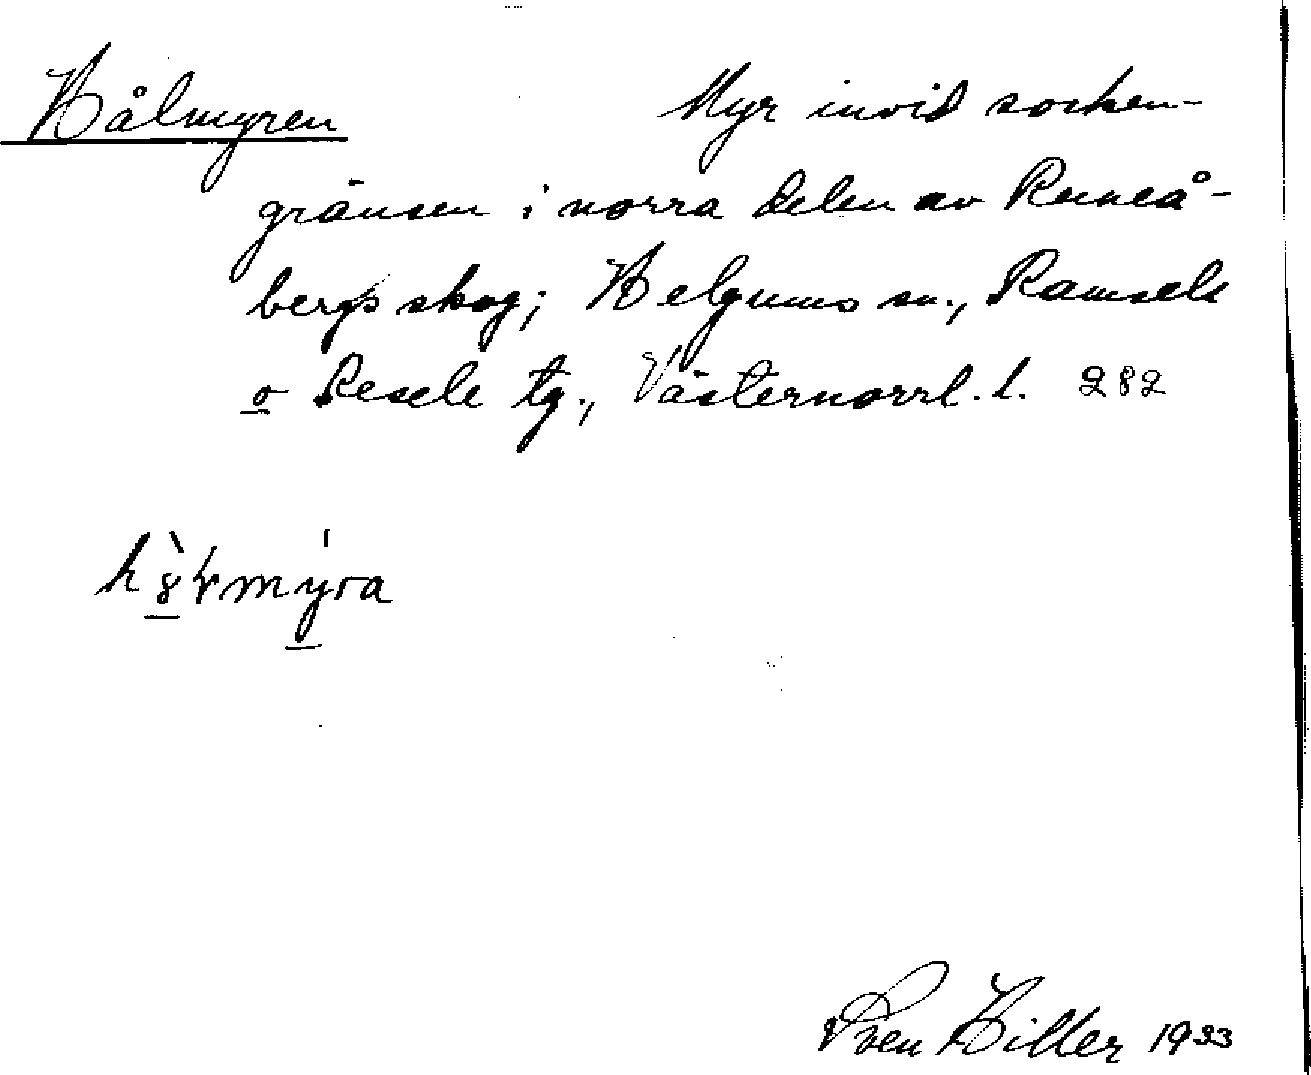 Hålmyren Myr invid socken-
gränsen i norra delen av Runeå-
bergs skog; Helgums sn., Ramsele
o Resele tg., Västernorrl. l. 282
Sven Hiller 1933